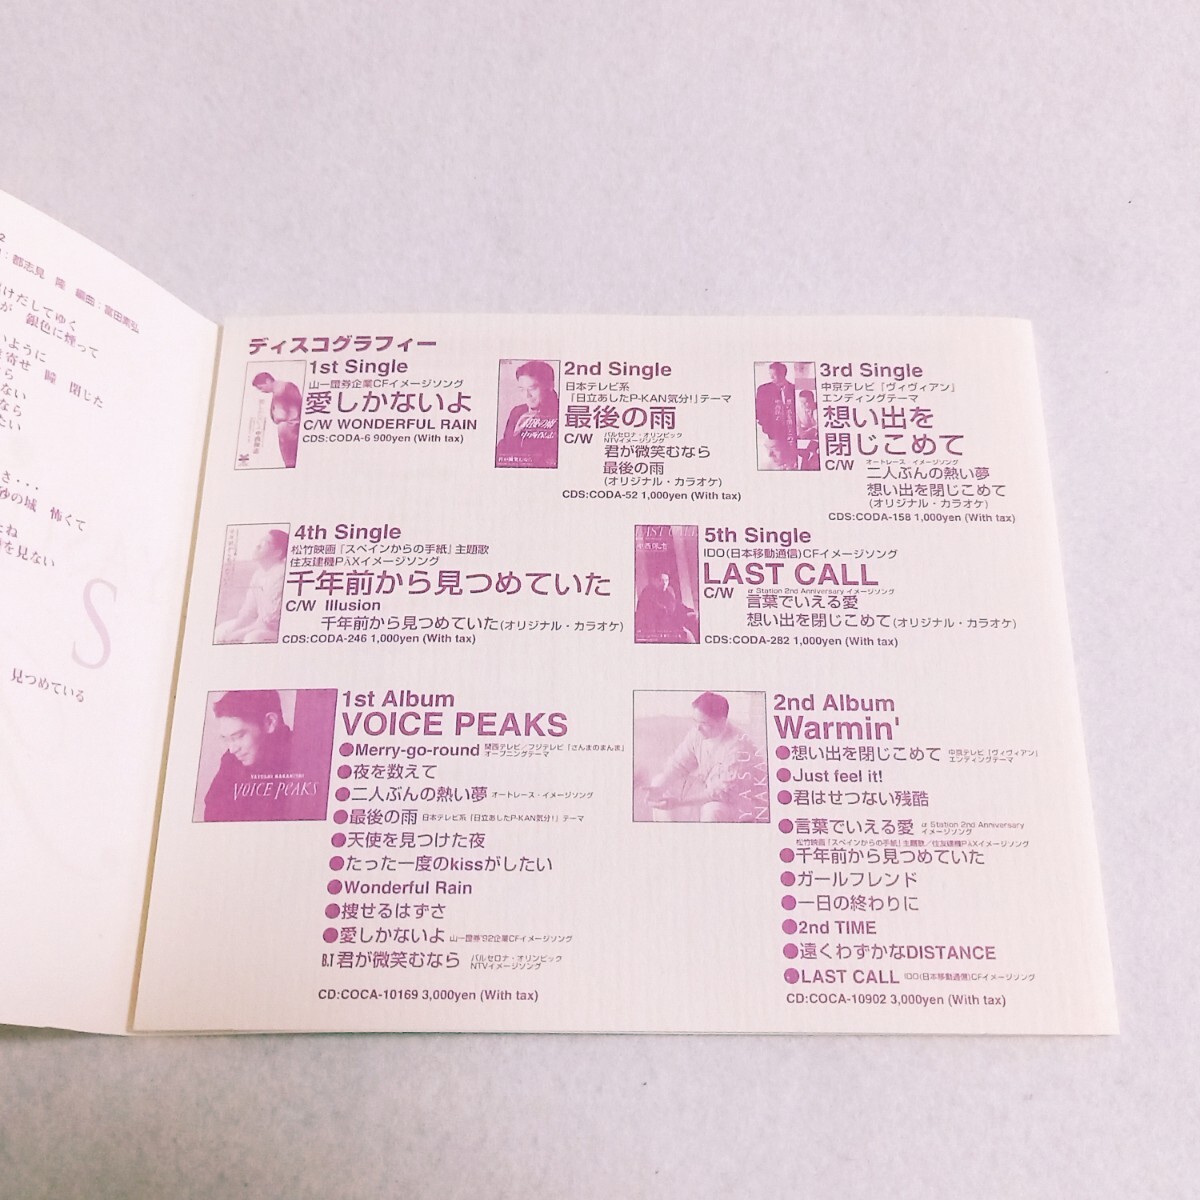 都志見 隆 編曲：富田素弘
けだしてゆく
が 銀色に煙って
いように
寄せ 瞳 閉じた
ら
ない
なら
たい
さ・・・
砂の城 怖くて
たね
を見ない
S
見つめている
ディスコグラフィー
1st Single
山一證券企業CFイメージソング
愛しかないよ
C/W WONDERFUL RAIN
CDS:CODA-6 900yen (With tax)
2nd Single
日本テレビ系
「日立あしたP-KAN気分！」テーマ
最後の雨
C/W バルセロナ・オリンピック
NTVイメージソング
君が微笑むなら
最後の雨
(オリジナル・カラオケ)
CDS:CODA-52 1,000yen (With tax)
3rd Single
中京テレビ「ヴィヴィアン」
エンディングテーマ
想い出を
閉じこめて
C/W オートレース・イメージソング
二人ぶんの熱い夢
想い出を閉じこめて
(オリジナル・カラオケ)
CDS:CODA-158 1,000yen (With tax)
4th Single
松竹映画『スペインからの手紙』主題歌
住友建機PΛXイメージソング
千年前から見つめていた
C/W Illusion
千年前から見つめていた(オリジナル・カラオケ)
CDS:CODA-246 1,000yen (With tax)
LAST CALL
5th Single
IDO(日本移動通信)CFイメージソング
LAST CALL
C/W α Station 2nd Anniversary イメージソング
言葉でいえる愛
想い出を閉じこめて(オリジナル・カラオケ)
CDS:CODA-282 1,000yen (With tax)
YASUSHI NAKANISHI
VOICE PEAKS
1st Album
VOICE PEAKS
●Merry-go-round 関西テレビ／フジテレビ「さんまのまんま」
オープニングテーマ
●夜を数えて
●二人ぶんの熱い夢 オートレース・イメージソング
●最後の雨 日本テレビ系「日立あしたP-KAN気分！」テーマ
●天使を見つけた夜
●たった一度のkissがしたい
●Wonderful Rain
●捜せるはずさ
●愛しかないよ 山一證券'92企業CFイメージソング
B.T 君が微笑むなら バルセロナ・オリンピック
NTVイメージソング
CD:COCA-10169 3,000yen (With tax)
2nd Album
Warmin'
●想い出を閉じこめて 中京テレビ「ヴィヴィアン」
エンディングテーマ
●Just feel it!
●君はせつない残酷
●言葉でいえる愛 α Station 2nd Anniversary
イメージソング
松竹映画『スペインからの手紙』主題歌／住友建機PΛXイメージソング
●千年前から見つめていた
●ガールフレンド
●一日の終わりに
●2nd TIME
●遠くわずかなDISTANCE
●LAST CALL IDO(日本移動通信)CFイメージソング
CD:COCA-10902 3,000yen (With tax)